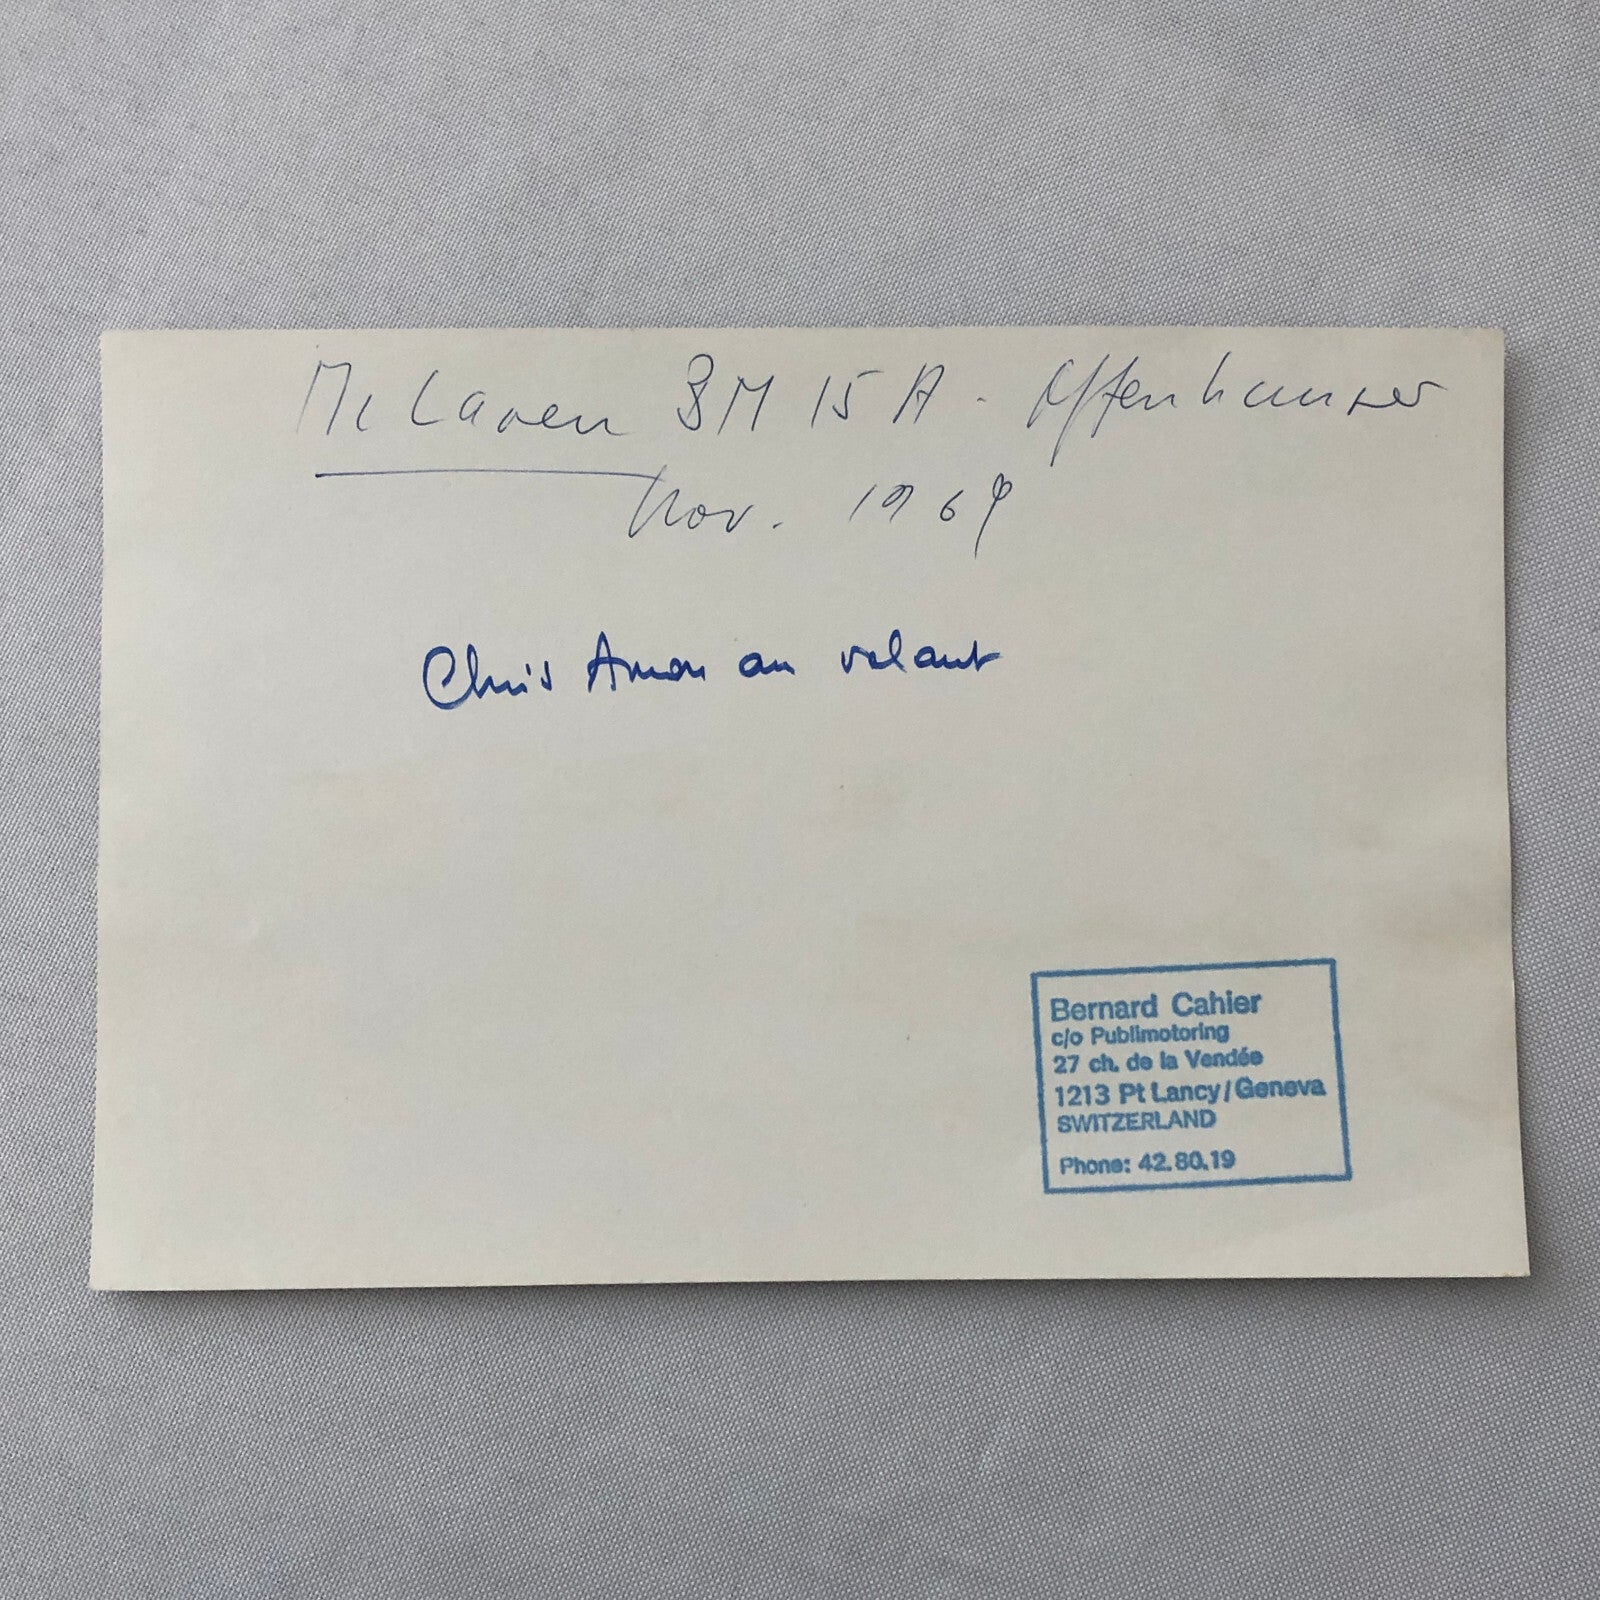 McLaren BM 15 A - Offenhauser
Nov. 1969
Chris Amon au volant
Bernard Cahier
c/o Publimotoring
27 ch. de la Vendée
1213 Pt Lancy/Geneva
SWITZERLAND
Phone: 42.80.19